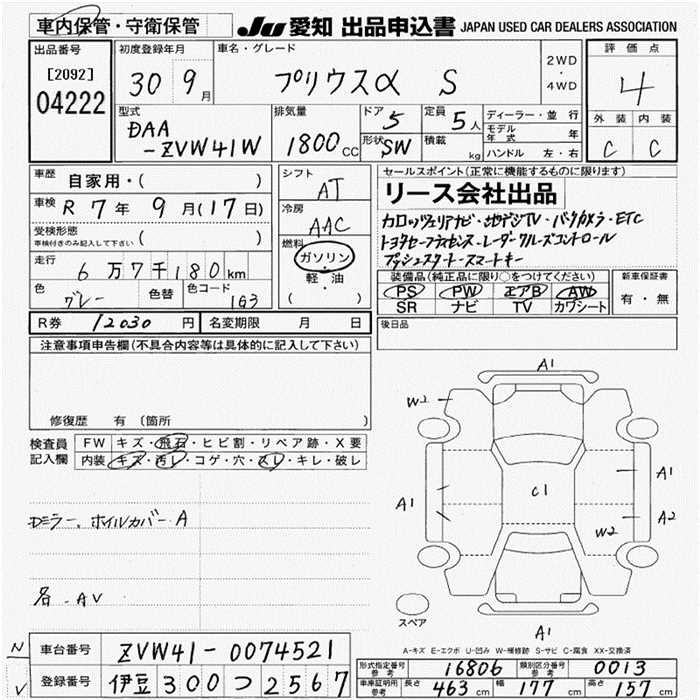 車内保管・守衛保管 JU 愛知 出品申込書 JAPAN USED CAR DEALERS ASSOCIATION
出品番号 初度登録年月 車名・グレード 2WD・4WD 評価点
[2092] 04222 30 9月 プリウスα S 4
型式 排気量 ドア 5 定員 5人 ディーラー・並行 外装 内装
DAA
-ZVW41W 1800cc 形状 SW 積載 kg モデル年式 年 C C
ハンドル 左・右
車歴 自家用・( ) シフト AT セールスポイント(正常に機能するものに限ります)
リース会社出品
車検 R7年9月(17日) 冷房 AAC
カロッツェリアナビ・地デジTV・バックカメラ・ETC
受検形態 車検付きのみ記入して下さい ( ) 燃料 ガソリン・軽・油 ( )
トヨタセーフティセンス・レーダークルーズコントロール
プッシュスタート・スマートキー
走行 6万7千180km
装備品(純正品に限り○をつけてください) 新車保証書
色 グレー 色替 色コード 1G3
PS PW エアB AW 有・無
SR ナビ TV カワシート
R券 12030円 名変期限 月 日 後日品
注意事項申告欄(不具合内容等は具体的に記入して下さい)
修復歴 有 (箇所 )
検査員記入欄 FW キズ・飛石・ヒビ割・リペア跡・X要
内装 キズ・汚レ・コゲ・穴・スレ・キレ・破レ
Dミラー、ホイルカバー A
各 AV
A1
W2
A1
A1
C1
A2
W2
スペア
A1
A-キズ E-エクボ U-凹み W-補修跡 S-サビ C-腐食 XX-交換済
N 車台番号 ZVW41-0074521
V 登録番号 伊豆 300 つ 2567
形式指定番号 参考 16806 類別区分番号 参考 0013
車庫証明用 参考 長さ 463cm 幅 177cm 高さ 157cm